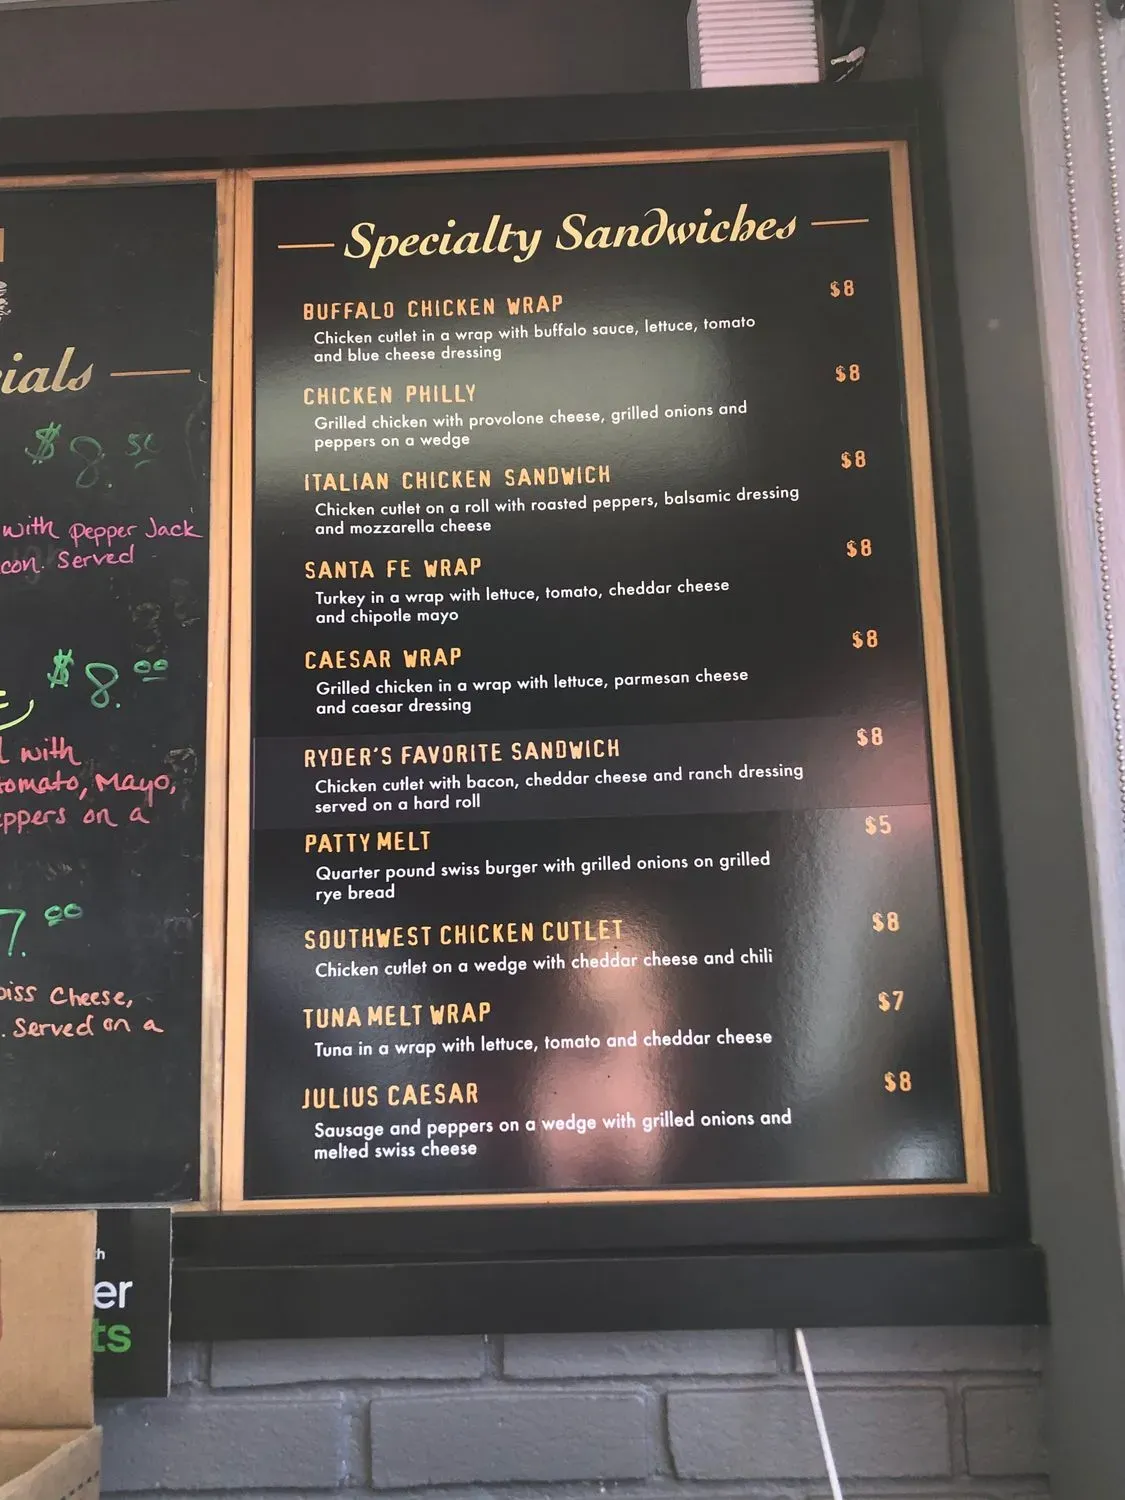 ials
$8.50
with pepper Jack
con. Served
$8.00
l with
tomato, Mayo,
eppers on a
7.00
iss Cheese,
. Served on a
Specialty Sandwiches
BUFFALO CHICKEN WRAP $8
Chicken cutlet in a wrap with buffalo sauce, lettuce, tomato
and blue cheese dressing
CHICKEN PHILLY $8
Grilled chicken with provolone cheese, grilled onions and
peppers on a wedge
ITALIAN CHICKEN SANDWICH $8
Chicken cutlet on a roll with roasted peppers, balsamic dressing
and mozzarella cheese
SANTA FE WRAP $8
Turkey in a wrap with lettuce, tomato, cheddar cheese
and chipotle mayo
CAESAR WRAP $8
Grilled chicken in a wrap with lettuce, parmesan cheese
and caesar dressing
RYDER'S FAVORITE SANDWICH $8
Chicken cutlet with bacon, cheddar cheese and ranch dressing
served on a hard roll
PATTY MELT $5
Quarter pound swiss burger with grilled onions on grilled
rye bread
SOUTHWEST CHICKEN CUTLET $8
Chicken cutlet on a wedge with cheddar cheese and chili
TUNA MELT WRAP $7
Tuna in a wrap with lettuce, tomato and cheddar cheese
JULIUS CAESAR $8
Sausage and peppers on a wedge with grilled onions and
melted swiss cheese
th
er
ts